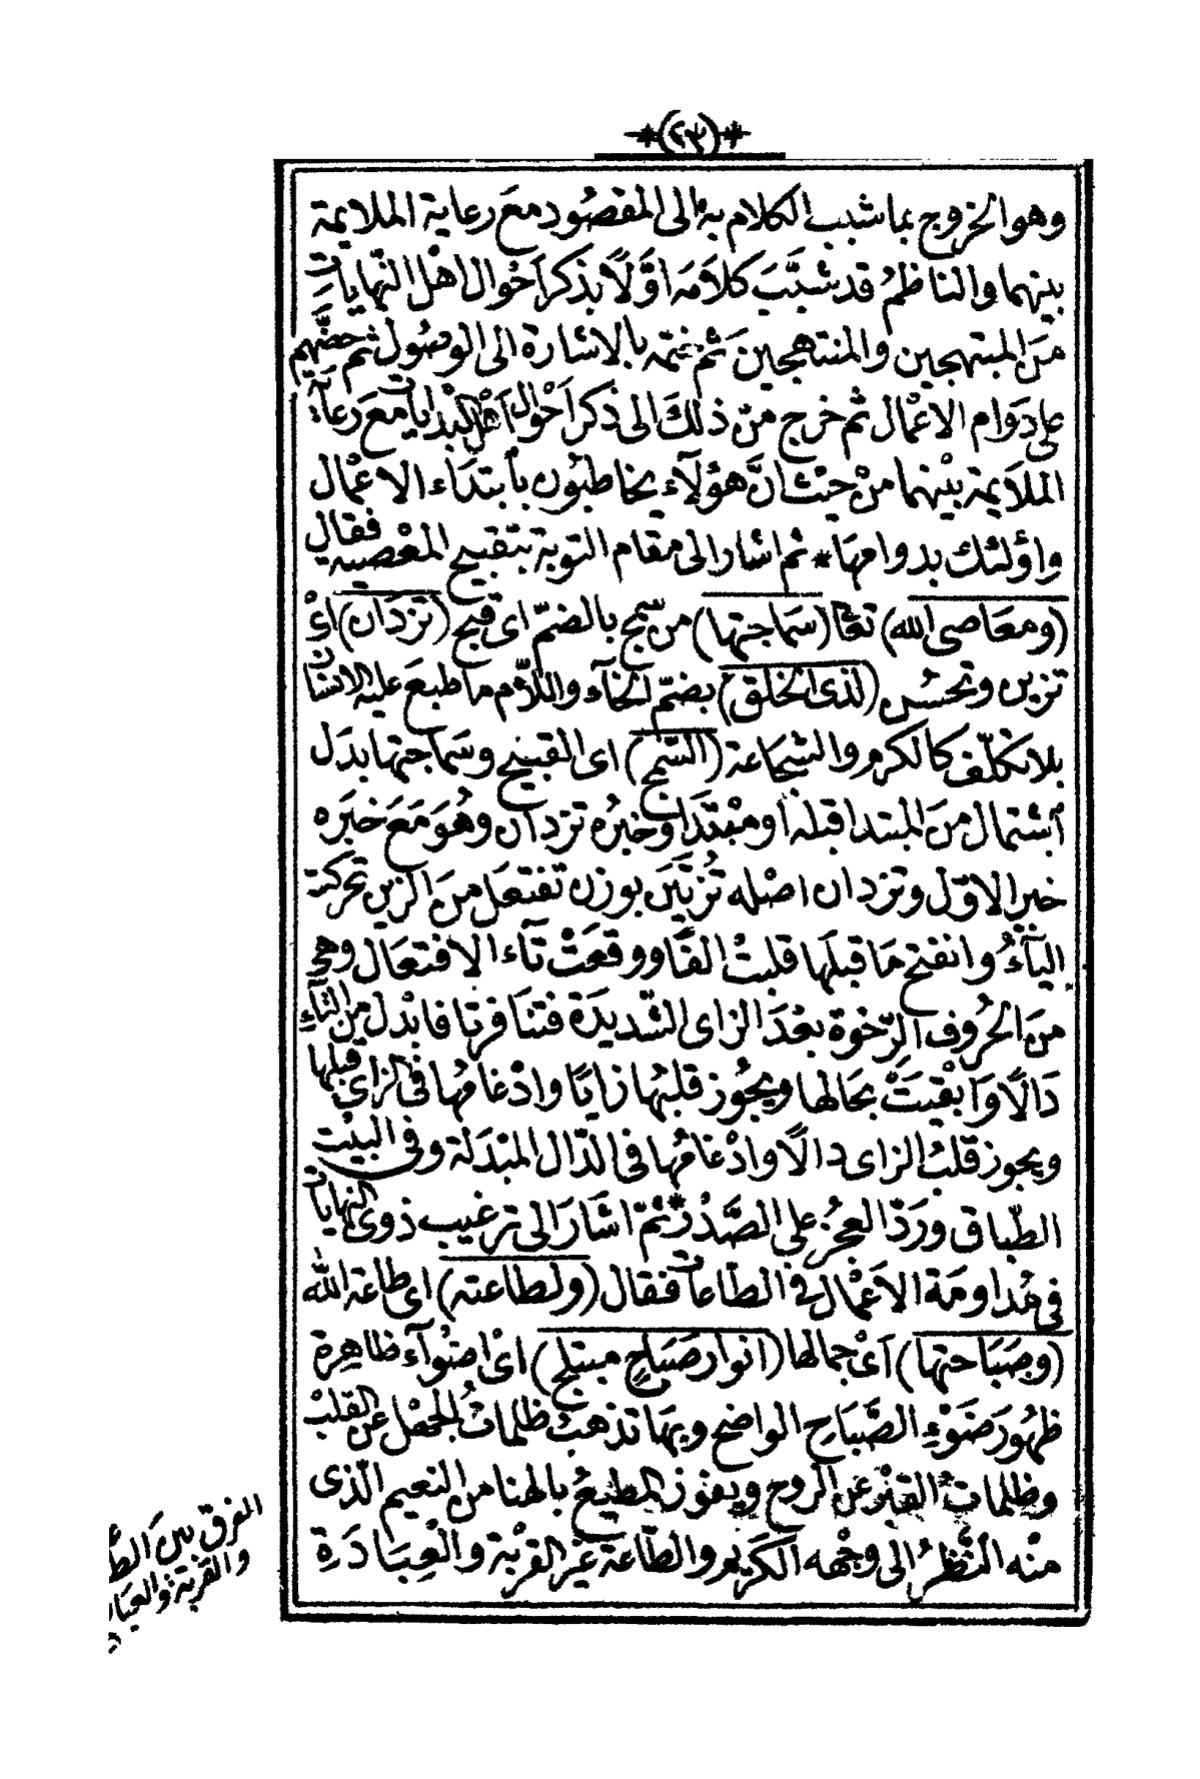 *(٢٣)*
وهو الخروج بما شبب الكلام به الى المقصود مع رعاية الملايمة
بينهما والناظمُ قد شبَّبَ كلاَمَه اوَّلًا بذكر اَحْوال اهْل النّهايات
منَ المبتهجين والمنتهجين ثم ختمه بالاشارة الى الوصُول ثم حضَّهم
على دوَام الاعْمال ثم خرج منْ ذلكَ الى ذكر اَحْوال اَهْل البْدايات معَ رعاَية
الملاَيمة بيْنهما منْ حيْث انَّ هؤلآء يخاطبُون باْبتدَاء الاعْمال
واؤلئك بدوامهَا * ثم اشار الى مقام التوبة بتقبيح المعْصية فقال
(ومعَاصى الله) تعالى (سَماجتها) من سمج بالضمّ اى قبح (تزدَان) اىْ
تزين وتحسُن (لذى الخلق) بضمّ الخآء واللّام ما طبعَ عليه الانسَان
بلا تكلّف كالكرم والشجَاعة (السّمج) اى القبيح وسَماجتها بدَل
اشتمال منَ المبتدا قبله او مبْتدَا وخبرُه تزدان وهُوَ مَعَ خبَره
خبر الاوّل وتزدان اصْله تُزتَيَن بوزن تفتعَل منَ الزين تحركت
اليآءُ وانفتح مَا قبلَها قلبتْ الفًا ووقعَتْ تآء الافتعَال وهى
منَ الحُروف الرّخوة بعْدَ الزاى الشّديدَة فتنَافرتا فابْدل منَ التَّاءِ
دَالًا وَابْقيَتْ بحَالها ويجُوز قلبُها زايًا وادْغامُها فى الزاى قبلها
ويجوز قلبُ الزاى دالًا وادْغامُها فى الدّال المبْدَلة وفى البيْت
الطّباق ورَدّ العجُز على الصَّدْر * ثمّ اشَارَ الى ترغيب ذوى النهايات
فى مُداومَة الاَعْمال فى الطّاعات فقال (ولطاعته) اى طاعة الله
(وصَبَاحتها) اَىْ جمالها (انوار صَبَاحٍ مبتلج) اىْ اضوُآء ظاهِرة
ظهُورَ ضَوْءِ الصَّبَاح الواضح وبهَا تذهبُ ظلماتُ الجهْل عن القلبْ
وظلماتُ القبْر عن الروح ويفوز المطيعُ بالهنا من النعيم الّذى
منْه النّظرُ الى وجْهه الكَريم والطّاعة غيْر القرْبة والْعِبَادَةِ
الفرق بين الط
والقربة والعبا
د